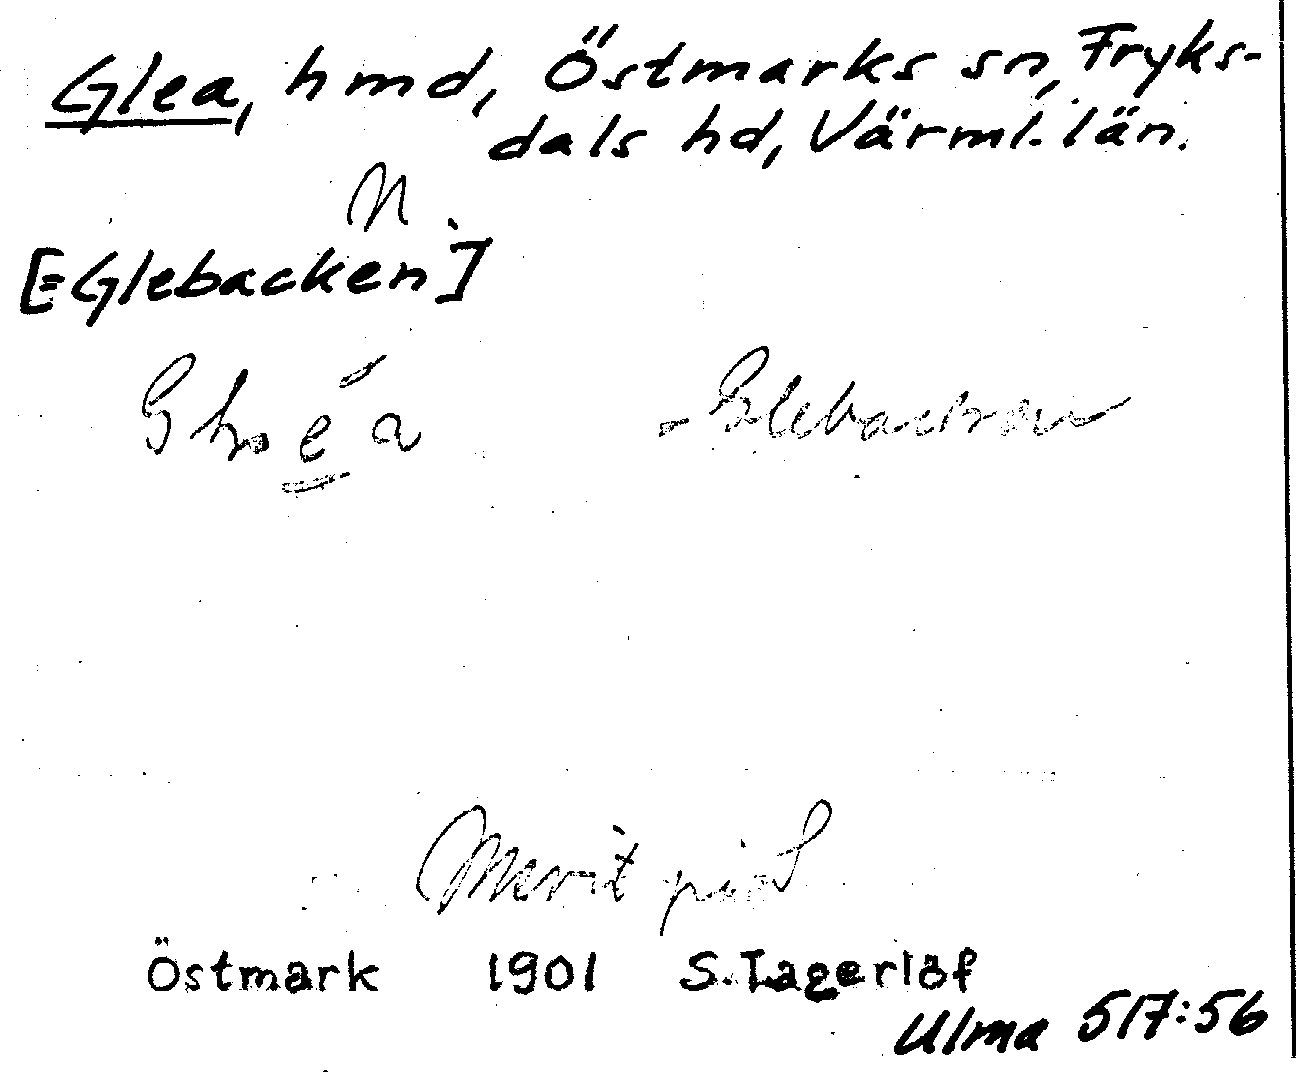 Glea, hmd, Östmarks sn, Fryks-
dals hd, Värml. län.
N.
[=Glebacken]
Glebacken
Östmark 1901 S. Lagerlöf
Ulma 517:56